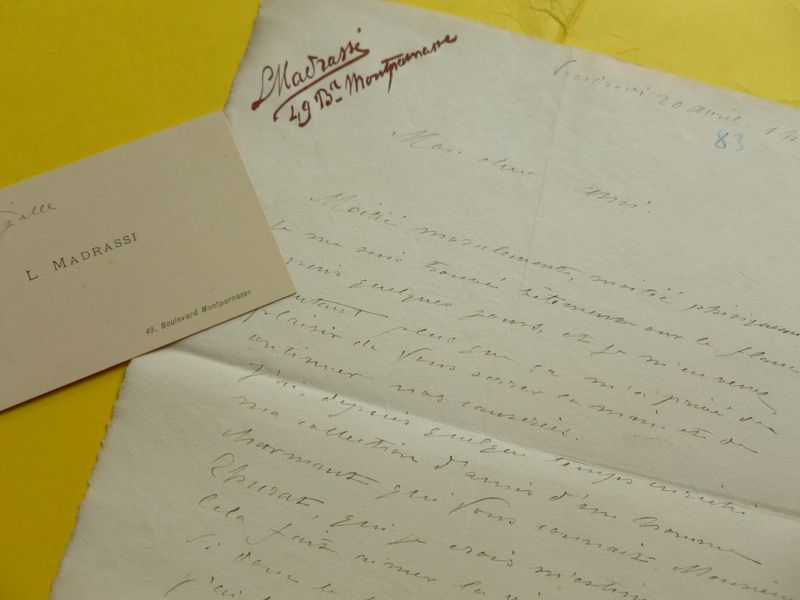 L Madrassi
49 Bd Montparnasse
Vendredi 20 avril, 1
83
Mon cher ami.
Moitié moralement, moitié physiquement
je me suis trouvé bêtement sur le flanc
quelques jours, et je m'en veux
autant plus que ça m'a privé du
plaisir de Vous serrer la main et de
continuer nos causeries.
J'ai, depuis quelque temps enrichi
ma collection d'amis d'un homme
charmant qui Vous connait, Monsieur
qui je crois
Cela fait aimer la
Si donc
j'ai
L. MADRASSI
49, Boulevard Montparnasse